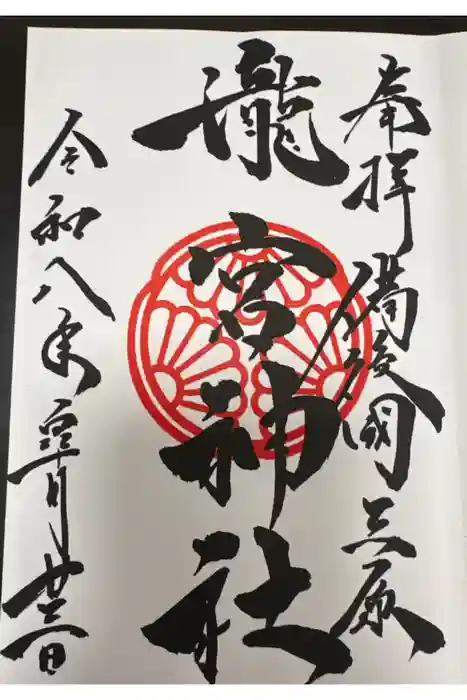 奉拝 備後國三原
瀧宮神社
令和八年皐月 日